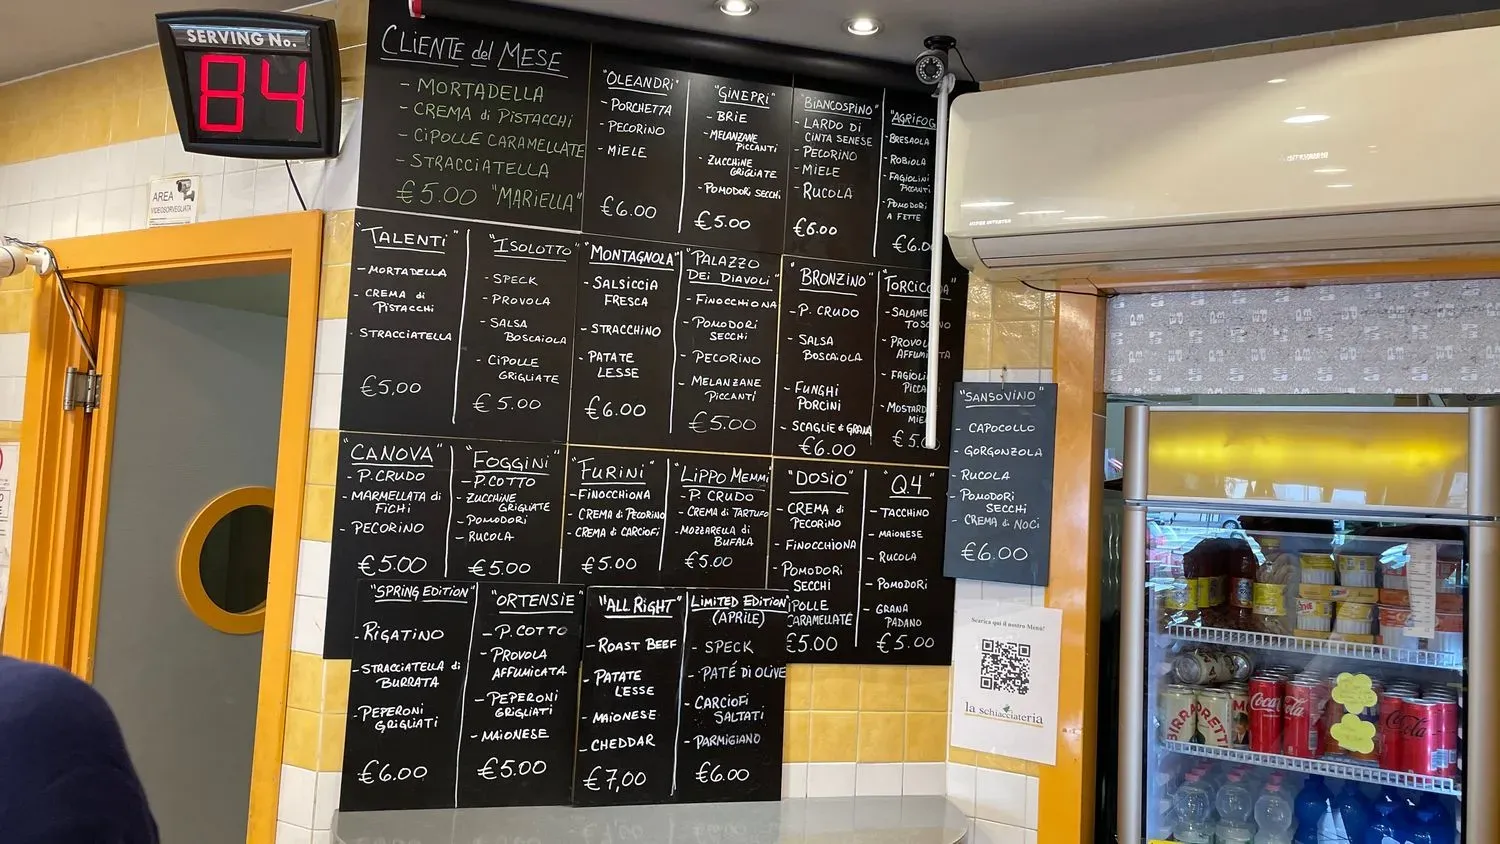 SERVING No.
84
AREA
VIDEOSORVEGLIATA
CLIENTE del MESE
- MORTADELLA
- CREMA di PISTACCHI
- CIPOLLE CARAMELLATE
- STRACCIATELLA
€5.00 "MARIELLA"
"OLEANDRI"
- PORCHETTA
- PECORINO
- MIELE
€6.00
"GINEPRI"
- BRIE
- MELANZANE
PICCANTI
- ZUCCHINE
GRIGLIATE
- POMODORI SECCHI
€5.00
"BIANCOSPINO"
- LARDO DI
CINTA SENESE
- PECORINO
- MIELE
- RUCOLA
€6.00
"AGRIFOG
- BRESAOLA
- ROBIOLA
- FAGIOLINI
PICCANTI
- POMODORI
A FETTE
€6.0
"TALENTI"
- MORTADELLA
- CREMA di
PISTACCHI
- STRACCIATELLA
€5,00
"ISOLOTTO"
- SPECK
- PROVOLA
- SALSA
BOSCAIOLA
- CIPOLLE
GRIGLIATE
€5.00
"MONTAGNOLA"
- SALSICCIA
FRESCA
- STRACCHINO
- PATATE
LESSE
€6.00
"PALAZZO
DEI DIAVOLI"
- FINOCCHIONA
- POMODORI
SECCHI
- PECORINO
- MELANZANE
PICCANTI
€5.00
"BRONZINO"
- P. CRUDO
- SALSA
BOSCAIOLA
- FUNGHI
PORCINI
- SCAGLIE di GRANA
€6.00
"TORCICODA"
- SALAME
TOSCANO
- PROVOLA
AFFUMICATA
- FAGIOLI
PICCA
- MOSTARD
MIE
€5.0
"SANSOVINO"
- CAPOCOLLO
- GORGONZOLA
- RUCOLA
- POMODORI
SECCHI
- CREMA di NOCI
€6.00
"CANOVA"
- P. CRUDO
- MARMELLATA di
FICHI
- PECORINO
€5.00
"FOGGINI"
- P. COTTO
- ZUCCHINE
GRIGLIATE
- POMODORI
- RUCOLA
€5.00
"FURINI"
- FINOCCHIONA
- CREMA di PECORINO
- CREMA di CARCIOFI
€5.00
"LIPPO MEMMI"
- P. CRUDO
- CREMA di TARTUFO
- MOZZARELLA di
BUFALA
€5.00
"DOSIO"
- CREMA di
PECORINO
- FINOCCHIONA
- POMODORI
SECCHI
IPOLLE
CARAMELLATE
€5.00
"Q.4"
- TACCHINO
- MAIONESE
- RUCOLA
- POMODORI
- GRANA
PADANO
€5.00
"SPRING EDITION"
- RIGATINO
- STRACCIATELLA di
BURRATA
- PEPERONI
GRIGLIATI
€6.00
"ORTENSIE"
- P. COTTO
- PROVOLA
AFFUMICATA
- PEPERONI
GRIGLIATI
- MAIONESE
€5.00
"ALL RIGHT"
- ROAST BEEF
- PATATE
LESSE
- MAIONESE
- CHEDDAR
€7,00
LIMITED EDITION
(APRILE)
- SPECK
- PATÉ DI OLIVE
- CARCIOFI
SALTATI
- PARMIGIANO
€6.00
Scarica qui il nostro Menù!
la schiacciateria
HYPER INVERTER
BIRRA MORETTI
Coca-Cola
Coca-Cola